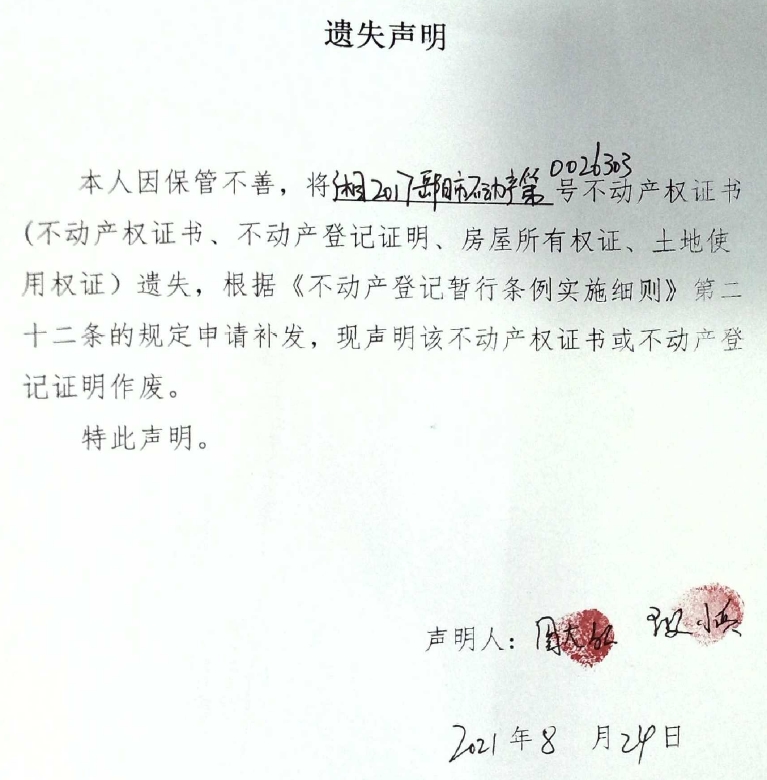 遗失声明
本人因保管不善，将湘2017岳阳市不动产第0026303号不动产权证书
(不动产权证书、不动产登记证明、房屋所有权证、土地使
用权证）遗失，根据《不动产登记暂行条例实施细则》第二
十二条的规定申请补发，现声明该不动产权证书或不动产登
记证明作废。
特此声明。
声明人：
2021年8月24日